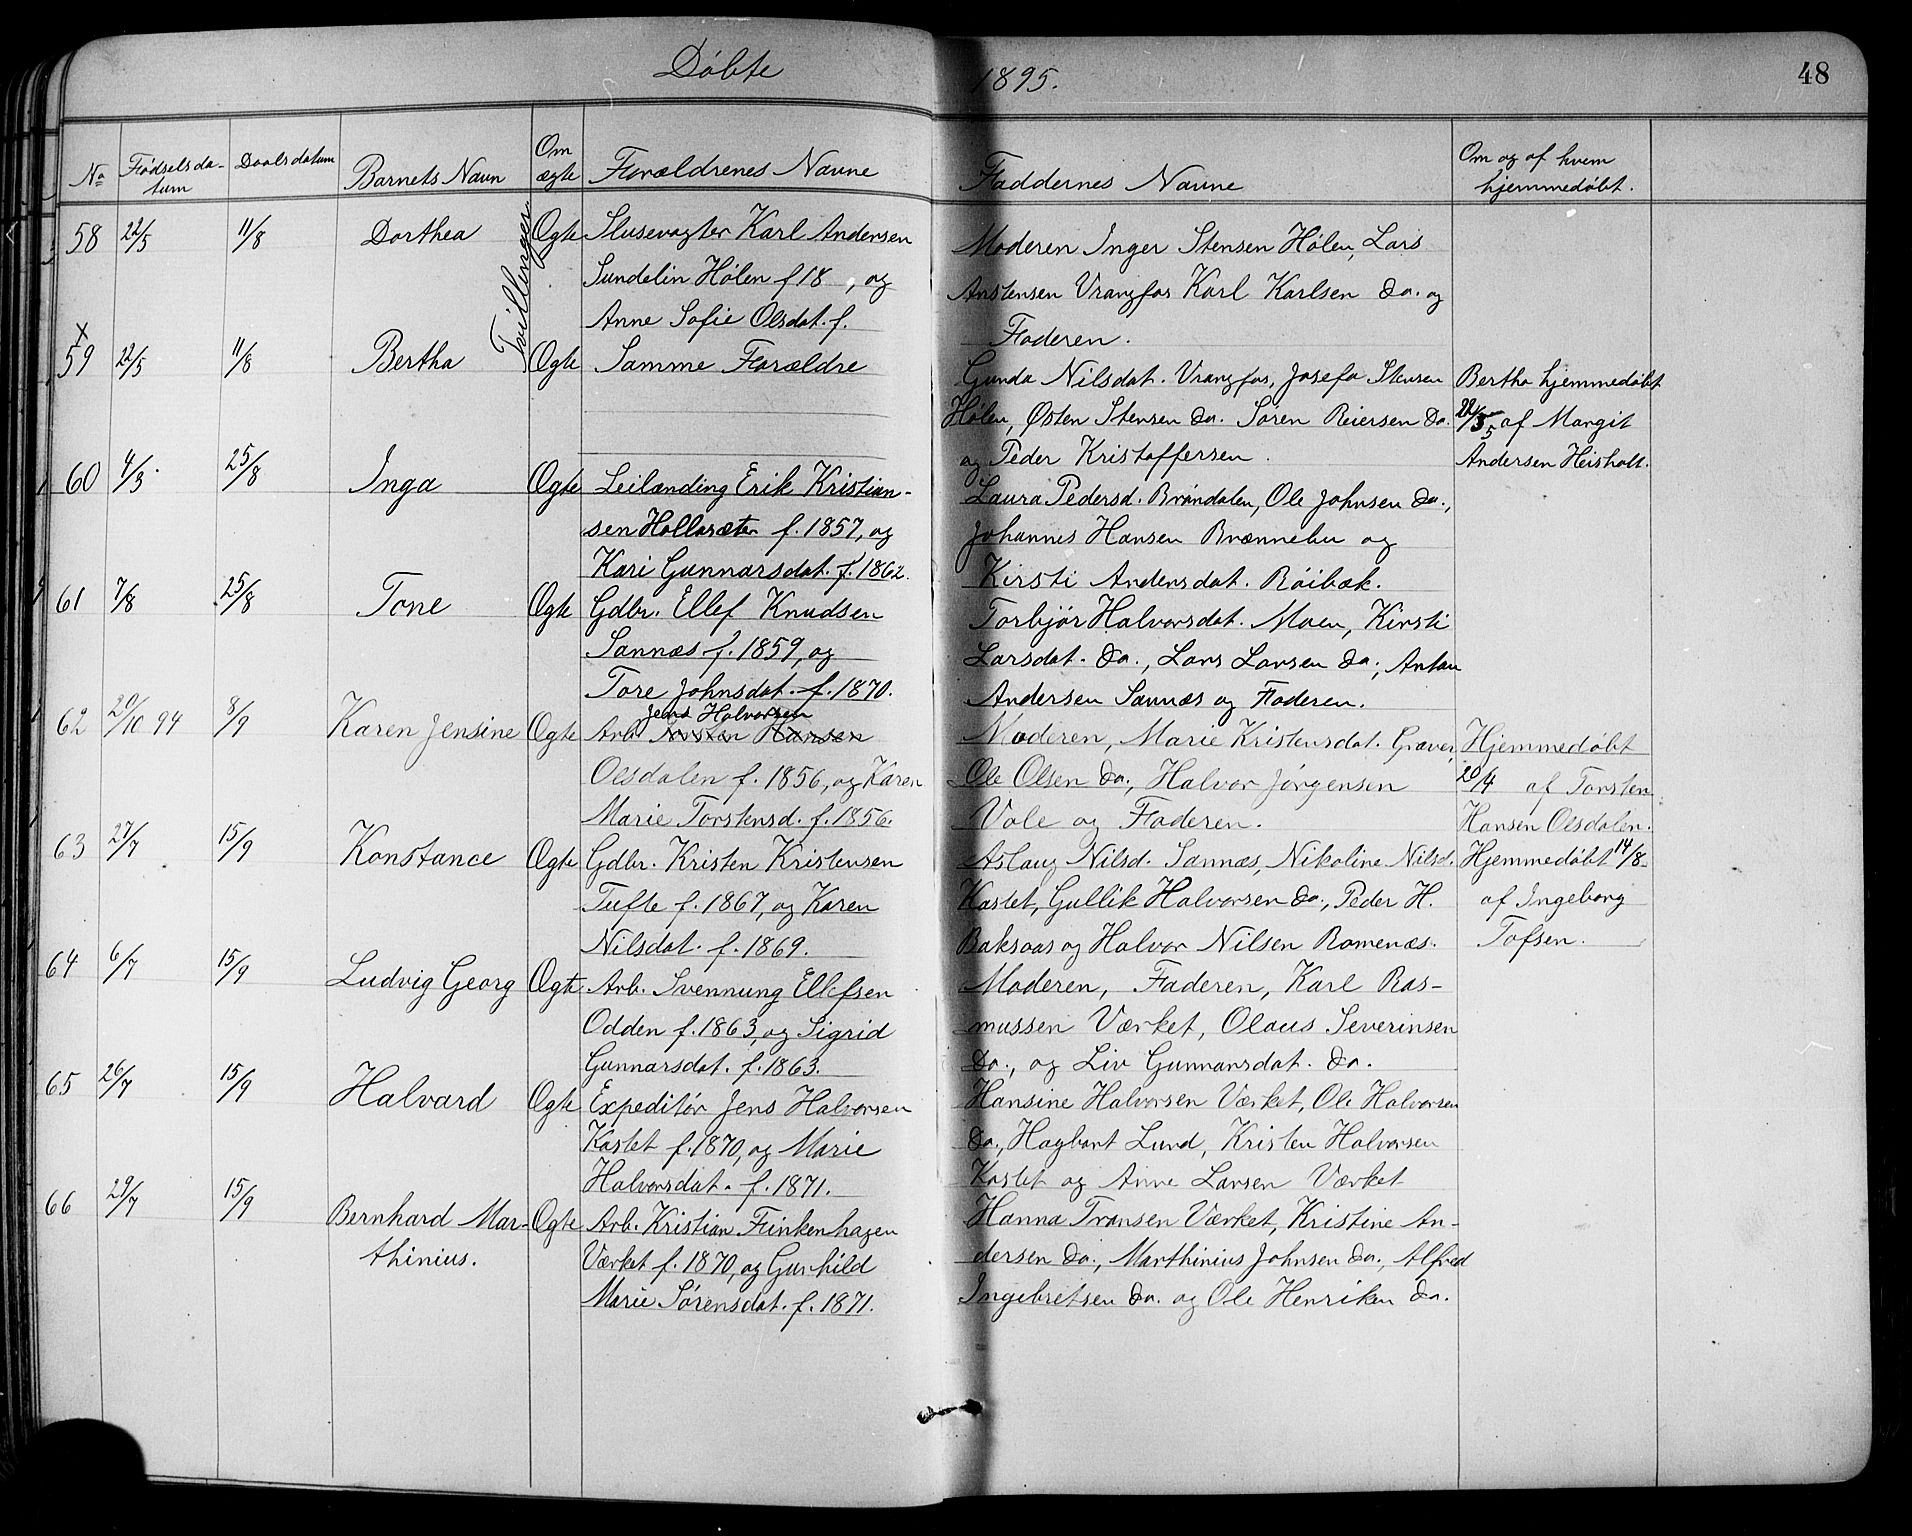 Döbte 1895. 48
No Fødselsda- Daabsdatum Barnets Navn Om Forældrenes Navne Faddernes Navne Om og af hvem
tum ægte hjemmedøbt.
58 22/5 11/8 Dorthea Tvillinger Ogte Slusevogter Karl Andersen
Sundelin Hölen f 18 , og
Anne Sofie Olsdat. f.
Moderen Inger Stensen Hölen, Lars
Anstensen Vrangfos Karl Karlsen do. og
Faderen.
x
59 22/5 11/8 Bertha Ogte Samme Forældre
Gunda Nilsdat. Vrangfos, Josefa Stensen
Hölen, Østen Stensen do. Sören Reiersen do.
og Peder Kristoffersen.
Bertha hjemmedöbt
22/5 af Margit
Andersen Heisholt.
60 4/3. 25/8 Inga Ogte Leilænding Erik Kristian-
sen Hollasæter f. 1857, og
Kari Gunnarsdat. f. 1862.
Laura Pedersd. Bröndalen, Ole Johnsen do.,
Johannes Hansen Brænnebu og
Kirsti Andersdat. Röibæk.
61 7/8 25/8 Tone Ogte Gdbr. Ellef Knudsen
Sannæs f. 1859, og
Tore Johnsdat. f. 1870.
Torbjör Halvorsdat. Moen, Kirsti
Larsdat. do., Lars Larsen do., Anton
Andersen Sannæs og Faderen.
62 20/10 94 8/9 Karen Jensine Ogte Jens Halvorsen
Arb. Torsten Hansen
Olsdalen f. 1856, og Karen
Marie Torstensd. f. 1856.
Moderen, Marie Kristensdat. Graver,
Ole Olsen do., Halvor Jörgensen
Vale og Faderen.
Hjemmedöbt
20/4 af Torsten
Hansen Olsdalen.
63 27/7 15/9 Konstance Ogte Gdbr. Kristen Kristensen
Tufte f. 1867, og Karen
Nilsdat. f. 1869.
Aslaug Nilsd. Sannæs, Nikoline Nilsd.
Kastet, Gullik Halvorsen do., Peder H.
Baksaas og Halvor Nilsen Romenæs.
Hjemmedöbt 14/8
af Ingeborg
Tofsen.
64 6/7 15/9 Ludvig Georg Ogte Arb. Svennung Ellefsen
Odden f. 1863, og Sigrid
Gunnarsdat. f. 1863.
Moderen, Faderen, Karl Ras-
mussen Værket, Olaus Severinsen
do., og Liv Gunnarsdat. do.
65 26/7 15/9 Halvard Ogte Expeditör Jens Halvorsen
Kastet f. 1870, og Marie
Halvorsdat. f. 1871.
Hansine Halvorsen Værket, Ole Halvorsen
do., Hagbart Lund, Kristen Halvorsen
Kastet og Anne Larsen Værket
66 29/7 15/9 Bernhard Mar-
thinius.
Ogte Arb. Kristian Finkenhagen
Værket f. 1870, og Gunhild
Marie Sörensdat. f. 1871.
Hanna Transen Værket, Kristine An-
dersen do., Marthinius Johnsen do., Alfred
Ingebretsen do. og Ole Henriken do.